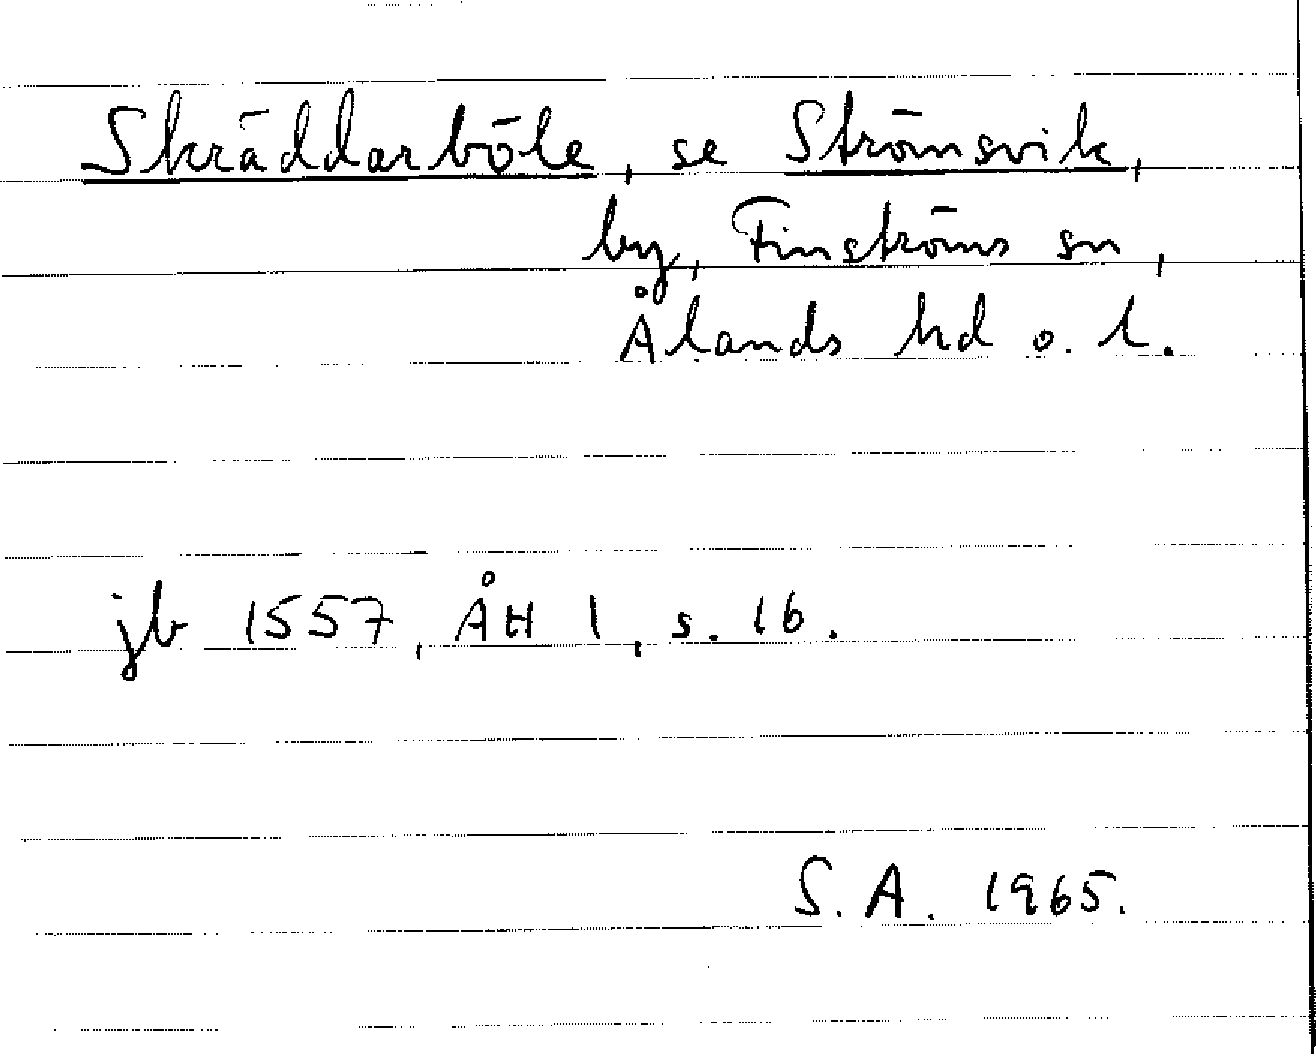 Skräddarböle, se Strömsvik,
by, Finströms sn,
Ålands hd o. l.
jb 1557, ÅH 1, s. 16.
S. A. 1965.